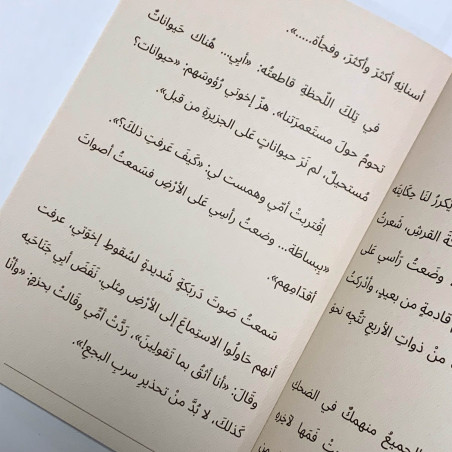 أسنانِهِ أكثرَ وأكثرَ، وفجأة.....».
في تِلكَ اللّحظةِ قاطعتُه: «أبي... هُناك حَيواناتٌ
تحومُ حولَ مستَعمرَتنا». هزّ إخوتي رُؤوسَهم: «حيوانات؟
مُستحيلٌ، لم نَرَ حيواناتٍ عَلى الجزيرةِ من قبل».
اِقتربتْ أمّي وهمست لي: «كَيفَ عَرفتِ ذلكَ؟».
«بِبساطة... وضعتُ رأسِي عَلى الأرْضِ فسَمعتُ أصواتَ
أقدَامِهم».
سَمعتُ صَوتَ دَربَكةٍ شَديدةٍ لسُقوطِ إخوَتي، عرفت
أنهم حَاولُوا الاستِماعَ إلى الأرْضِ مِثلي. نَفَضَ أبِي جَناحَيه
وقالَ: «أنا أثقُ بما تَقولينَ»، ردَّتْ أمِّي وقالتْ بحزمٍ: «وأنَا
كَذلكَ، لا بُدَّ منْ تحذيرِ سربِ البجعِ!».
يُكررُ لنَا حِكايَته
القرشِ، شَعرتُ
وضَعتُ رَأسي عَلى
قادمةٍ من بعيدٍ، وأدْركتُ
منْ ذواتِ الأربعِ تتَّجه نحوَ
الجميعُ منهمكٌ في الضحكِ
فمَها لآخِرِهِ